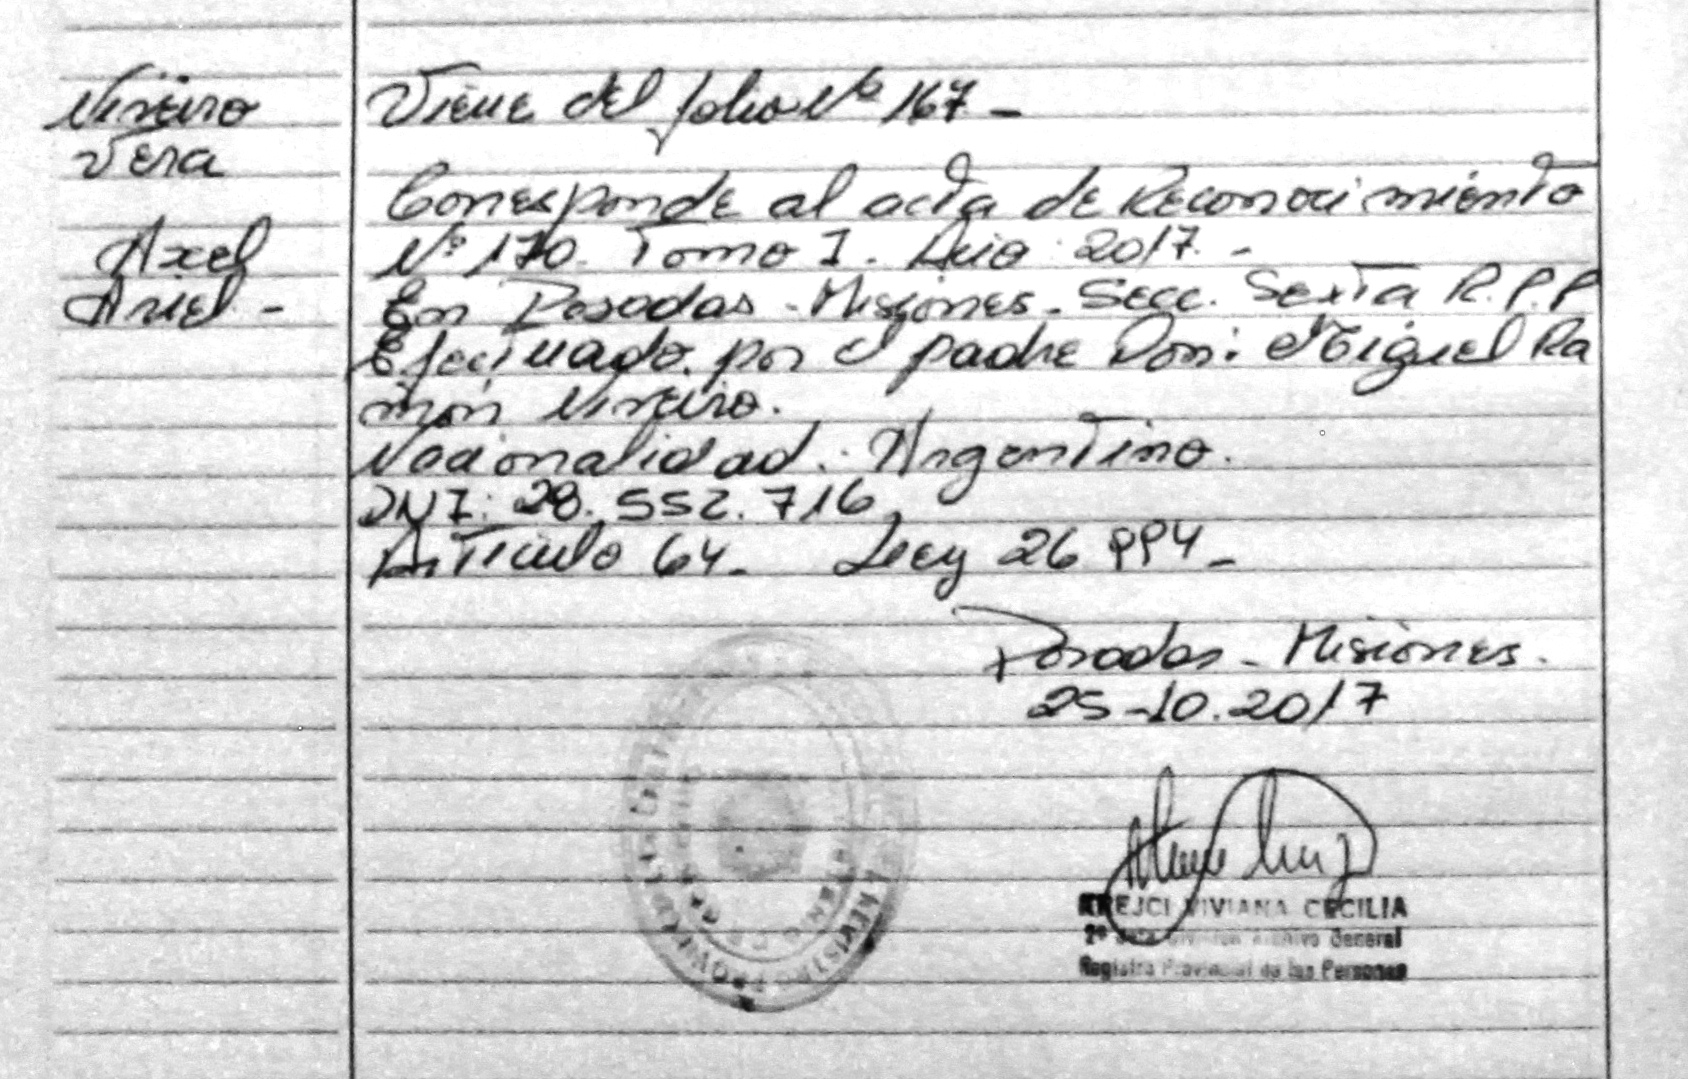 Nireiro
Vera
Axel
Ariel -
Viene del folio Nº 167 -
Corresponde al acta de Reconocimiento
Nº 170. Tomo I. Año 2017. -
En Posadas - Misiones. Secc. Sexta R.P.P
Efectuado. por el padre Don: Miguel Ra
món Nireiro.
Nacionalidad: Argentino.
DNI: 28.552.716
Artículo 64 - Ley 26 994 -
Posadas - Misiones.
25-10.2017
KREJCI VIVIANA CECILIA
2º Jefa División Archivo General
Registro Provincial de las Personas
REGISTRO PROVINCIAL